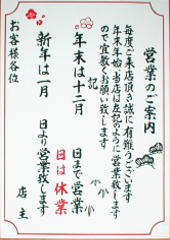 営業のご案内
毎度ご来店頂き誠に有難うございます
年末年始、当店は左記のように営業致します
ので宜敷くお願い致します
記
年末は十二月 日まで営業
日は休業
新年は一月 日より営業致します
お客様各位
店主